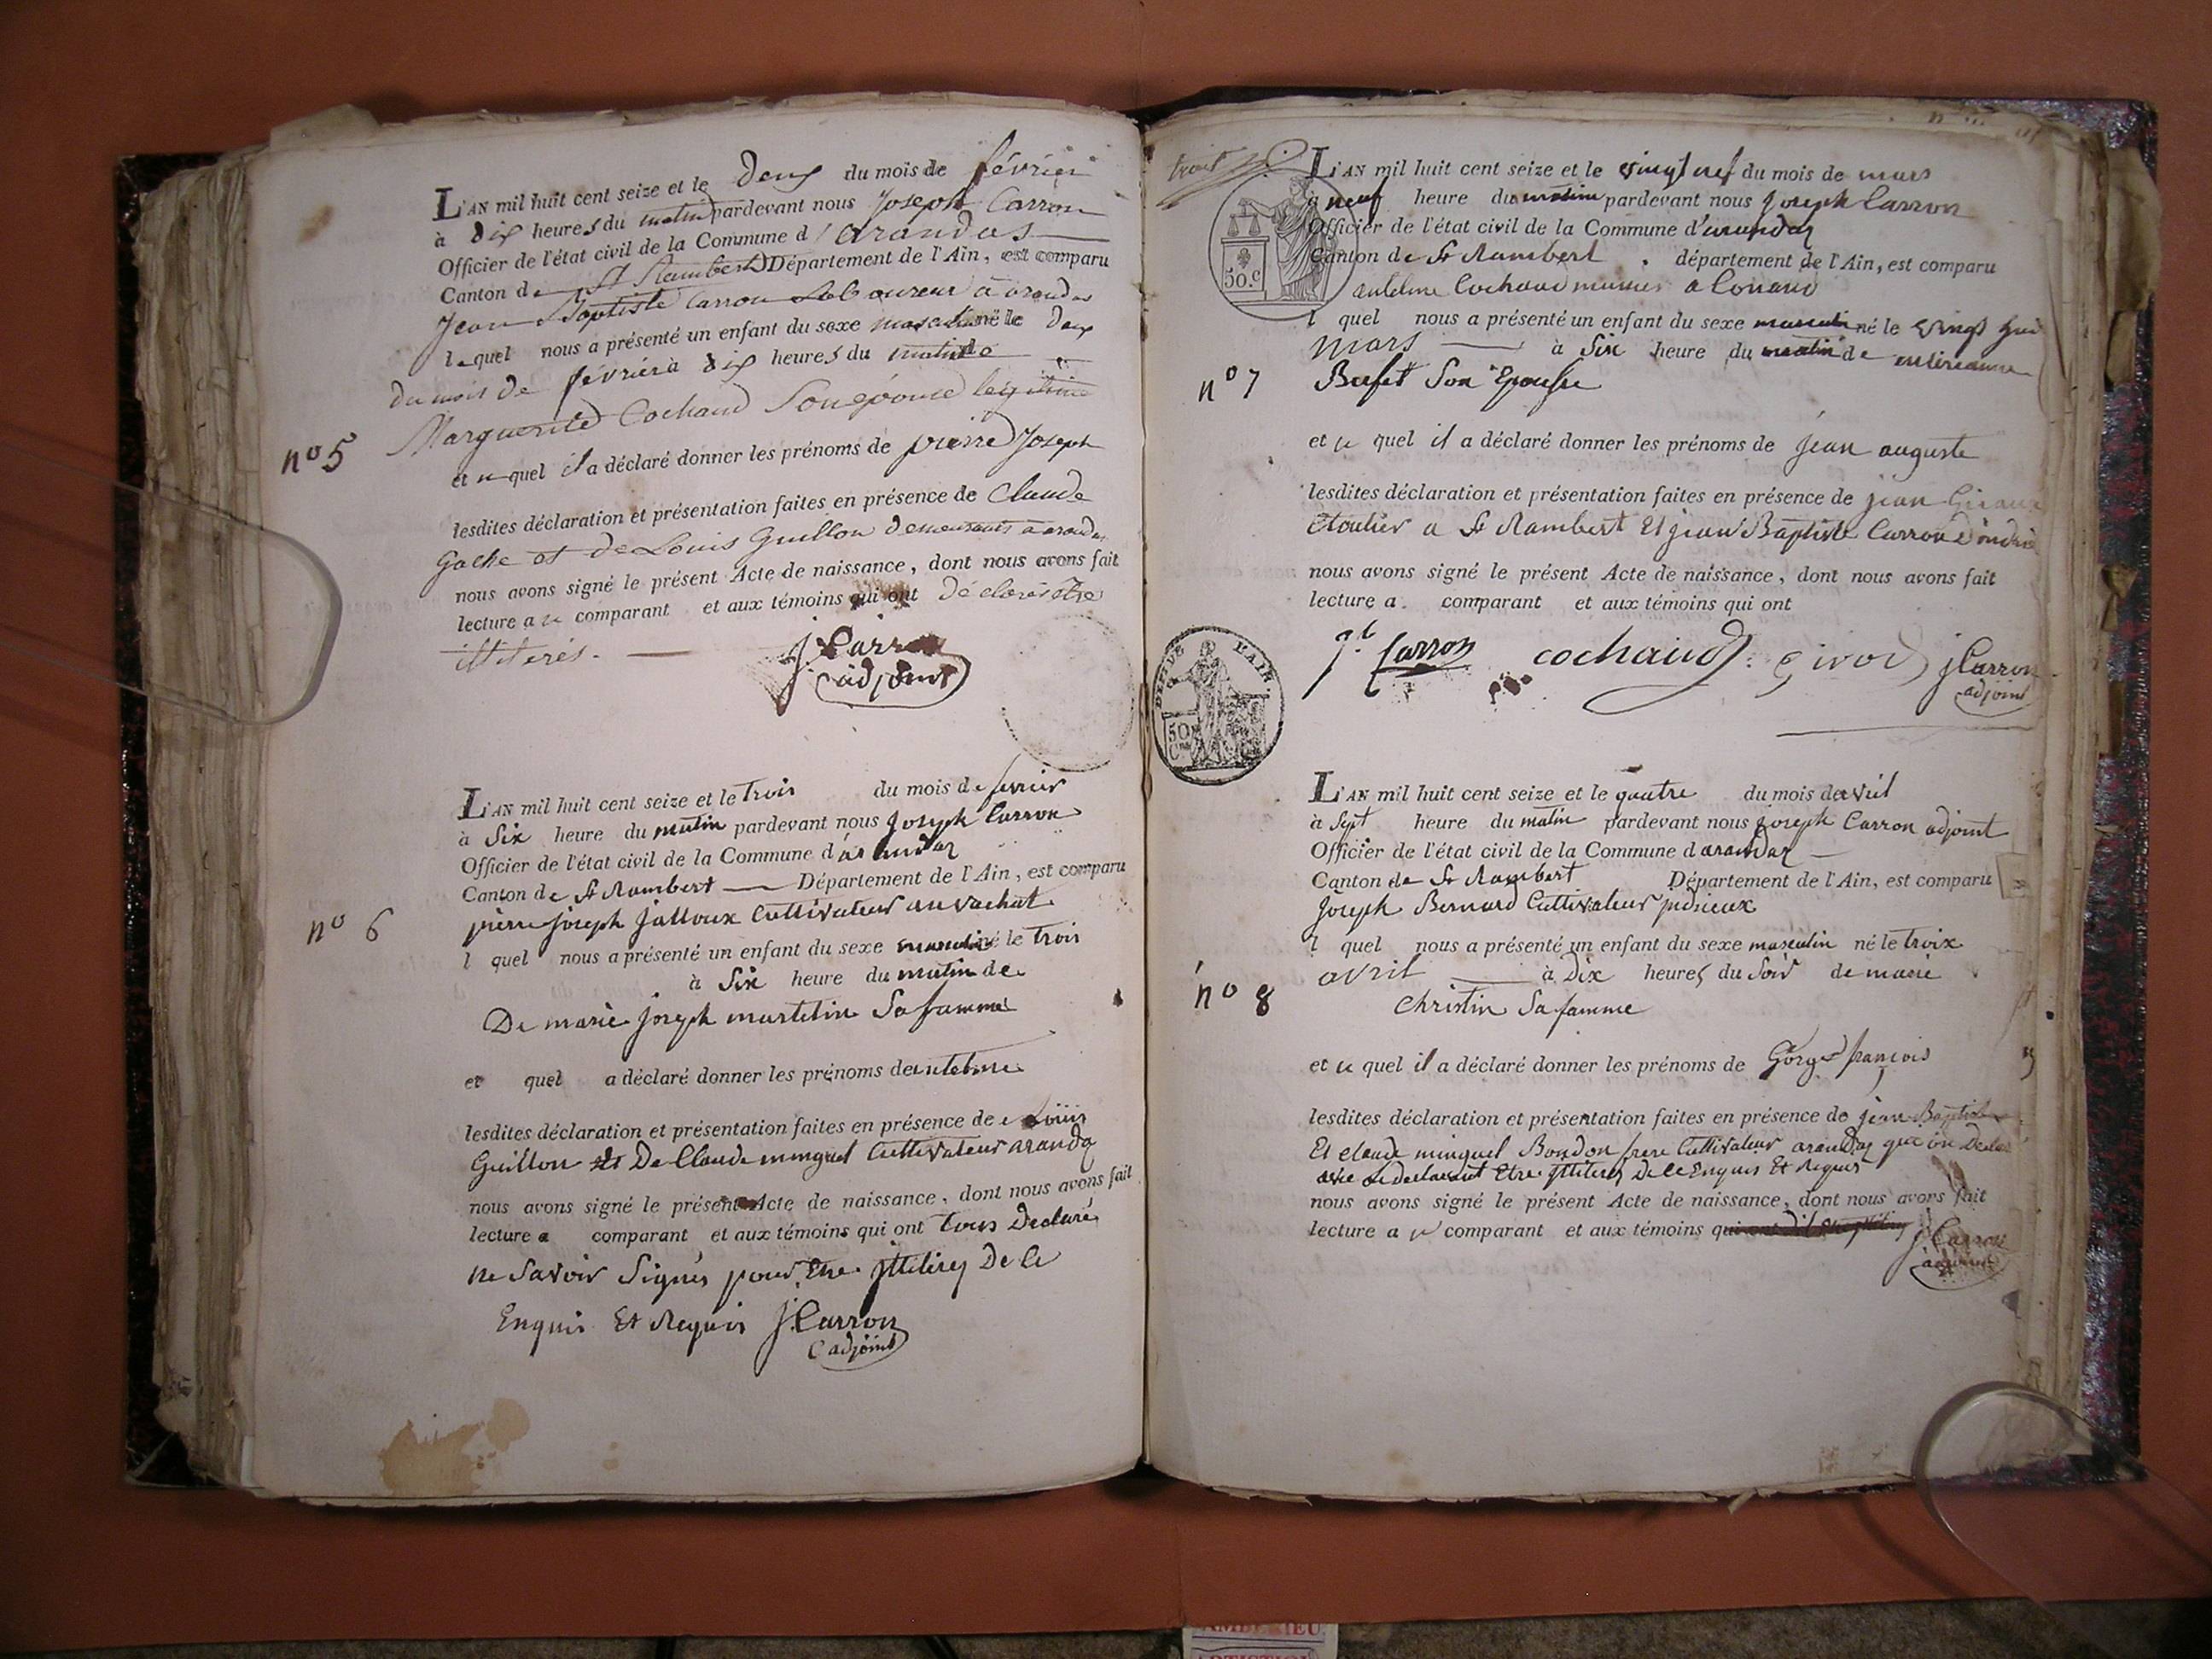 L'AN mil huit cent seize et le deux du mois de février
à dix heures du matin pardevant nous Joseph Carron
Officier de l'état civil de la Commune d'arandas
Canton de St Rambert Département de l'Ain, est comparu
Jean Baptiste Carron Laboureur à arandas
lequel nous a présenté un enfant du sexe masculin né le deux
du mois de février à dix heures du matin de
Marguerite Cochaud Son épouse legitime
n° 5
et ce quel il a déclaré donner les prénoms de pierre Joseph
lesdites déclaration et présentation faites en présence de Claude
Gache et de Louis Guillon demeurants à arandas
nous avons signé le présent Acte de naissance, dont nous avons fait
lecture a ce comparant et aux témoins qui ont déclaré être
illiterés.
J. Carron
adjoint
L'AN mil huit cent seize et le trois du mois de fevrier
à Six heure du matin pardevant nous joseph Carron
Officier de l'état civil de la Commune d'arandas
Canton de St Rambert Département de l'Ain, est comparu
n° 6
pierre joseph jalloux Cultivateur au vachat
l quel nous a présenté un enfant du sexe masculin né le trois
à Six heure du matin de
De marie joseph martelin Sa famme
et quel a déclaré donner les prénoms de antelme
lesdites déclaration et présentation faites en présence de Louis
Guillon et De Claude minguet Cultivateur aranda
nous avons signé le présent Acte de naissance, dont nous avons fait
lecture a comparant et aux témoins qui ont tous Declaré
ne Savoir Signés pour Etre jlliterés De ce
Enquis Et Requis J. Carron
adjoint
L'AN mil huit cent seize et le vingt nef du mois de mars
à neuf heure du matin pardevant nous joseph Carron
Officier de l'état civil de la Commune d'arandas
Canton de St Rambert département de l'Ain, est comparu
50.c
antelme Cochaud a Conand
l quel nous a présenté un enfant du sexe masculin né le vingt hui
mars à Six heure du matin de
n° 7
Bufet Son Epouse
et ce quel il a déclaré donner les prénoms de jean auguste
lesdites déclaration et présentation faites en présence de jean
a St Rambert Et jean Baptiste Carron
nous avons signé le présent Acte de naissance, dont nous avons fait
lecture a comparant et aux témoins qui ont
Carron cochaud girod J Carron
adjoint
DEP. DE L'AIN
50
L'AN mil huit cent seize et le quatre du mois de avril
à Sept heure du matin pardevant nous joseph Carron adjoint
Officier de l'état civil de la Commune d arandas
Canton de St Rambert Département de l'Ain, est comparu
joseph Bernard Cultivateur
l quel nous a présenté un enfant du sexe masculin né le troix
avril à Dix heures du Soir de marie
n° 8
Christin Sa famme
et ce quel il a déclaré donner les prénoms de Gorge françois
lesdites déclaration et présentation faites en présence de jean Baptiste
Et claude minguet Bondon frere Cultivateur arandas qui on
Etre jlliterés De ce Enquis Et Requis
nous avons signé le présent Acte de naissance, dont nous avons fait
lecture a ce comparant et aux témoins qui ont dit
J Carron
adjoint